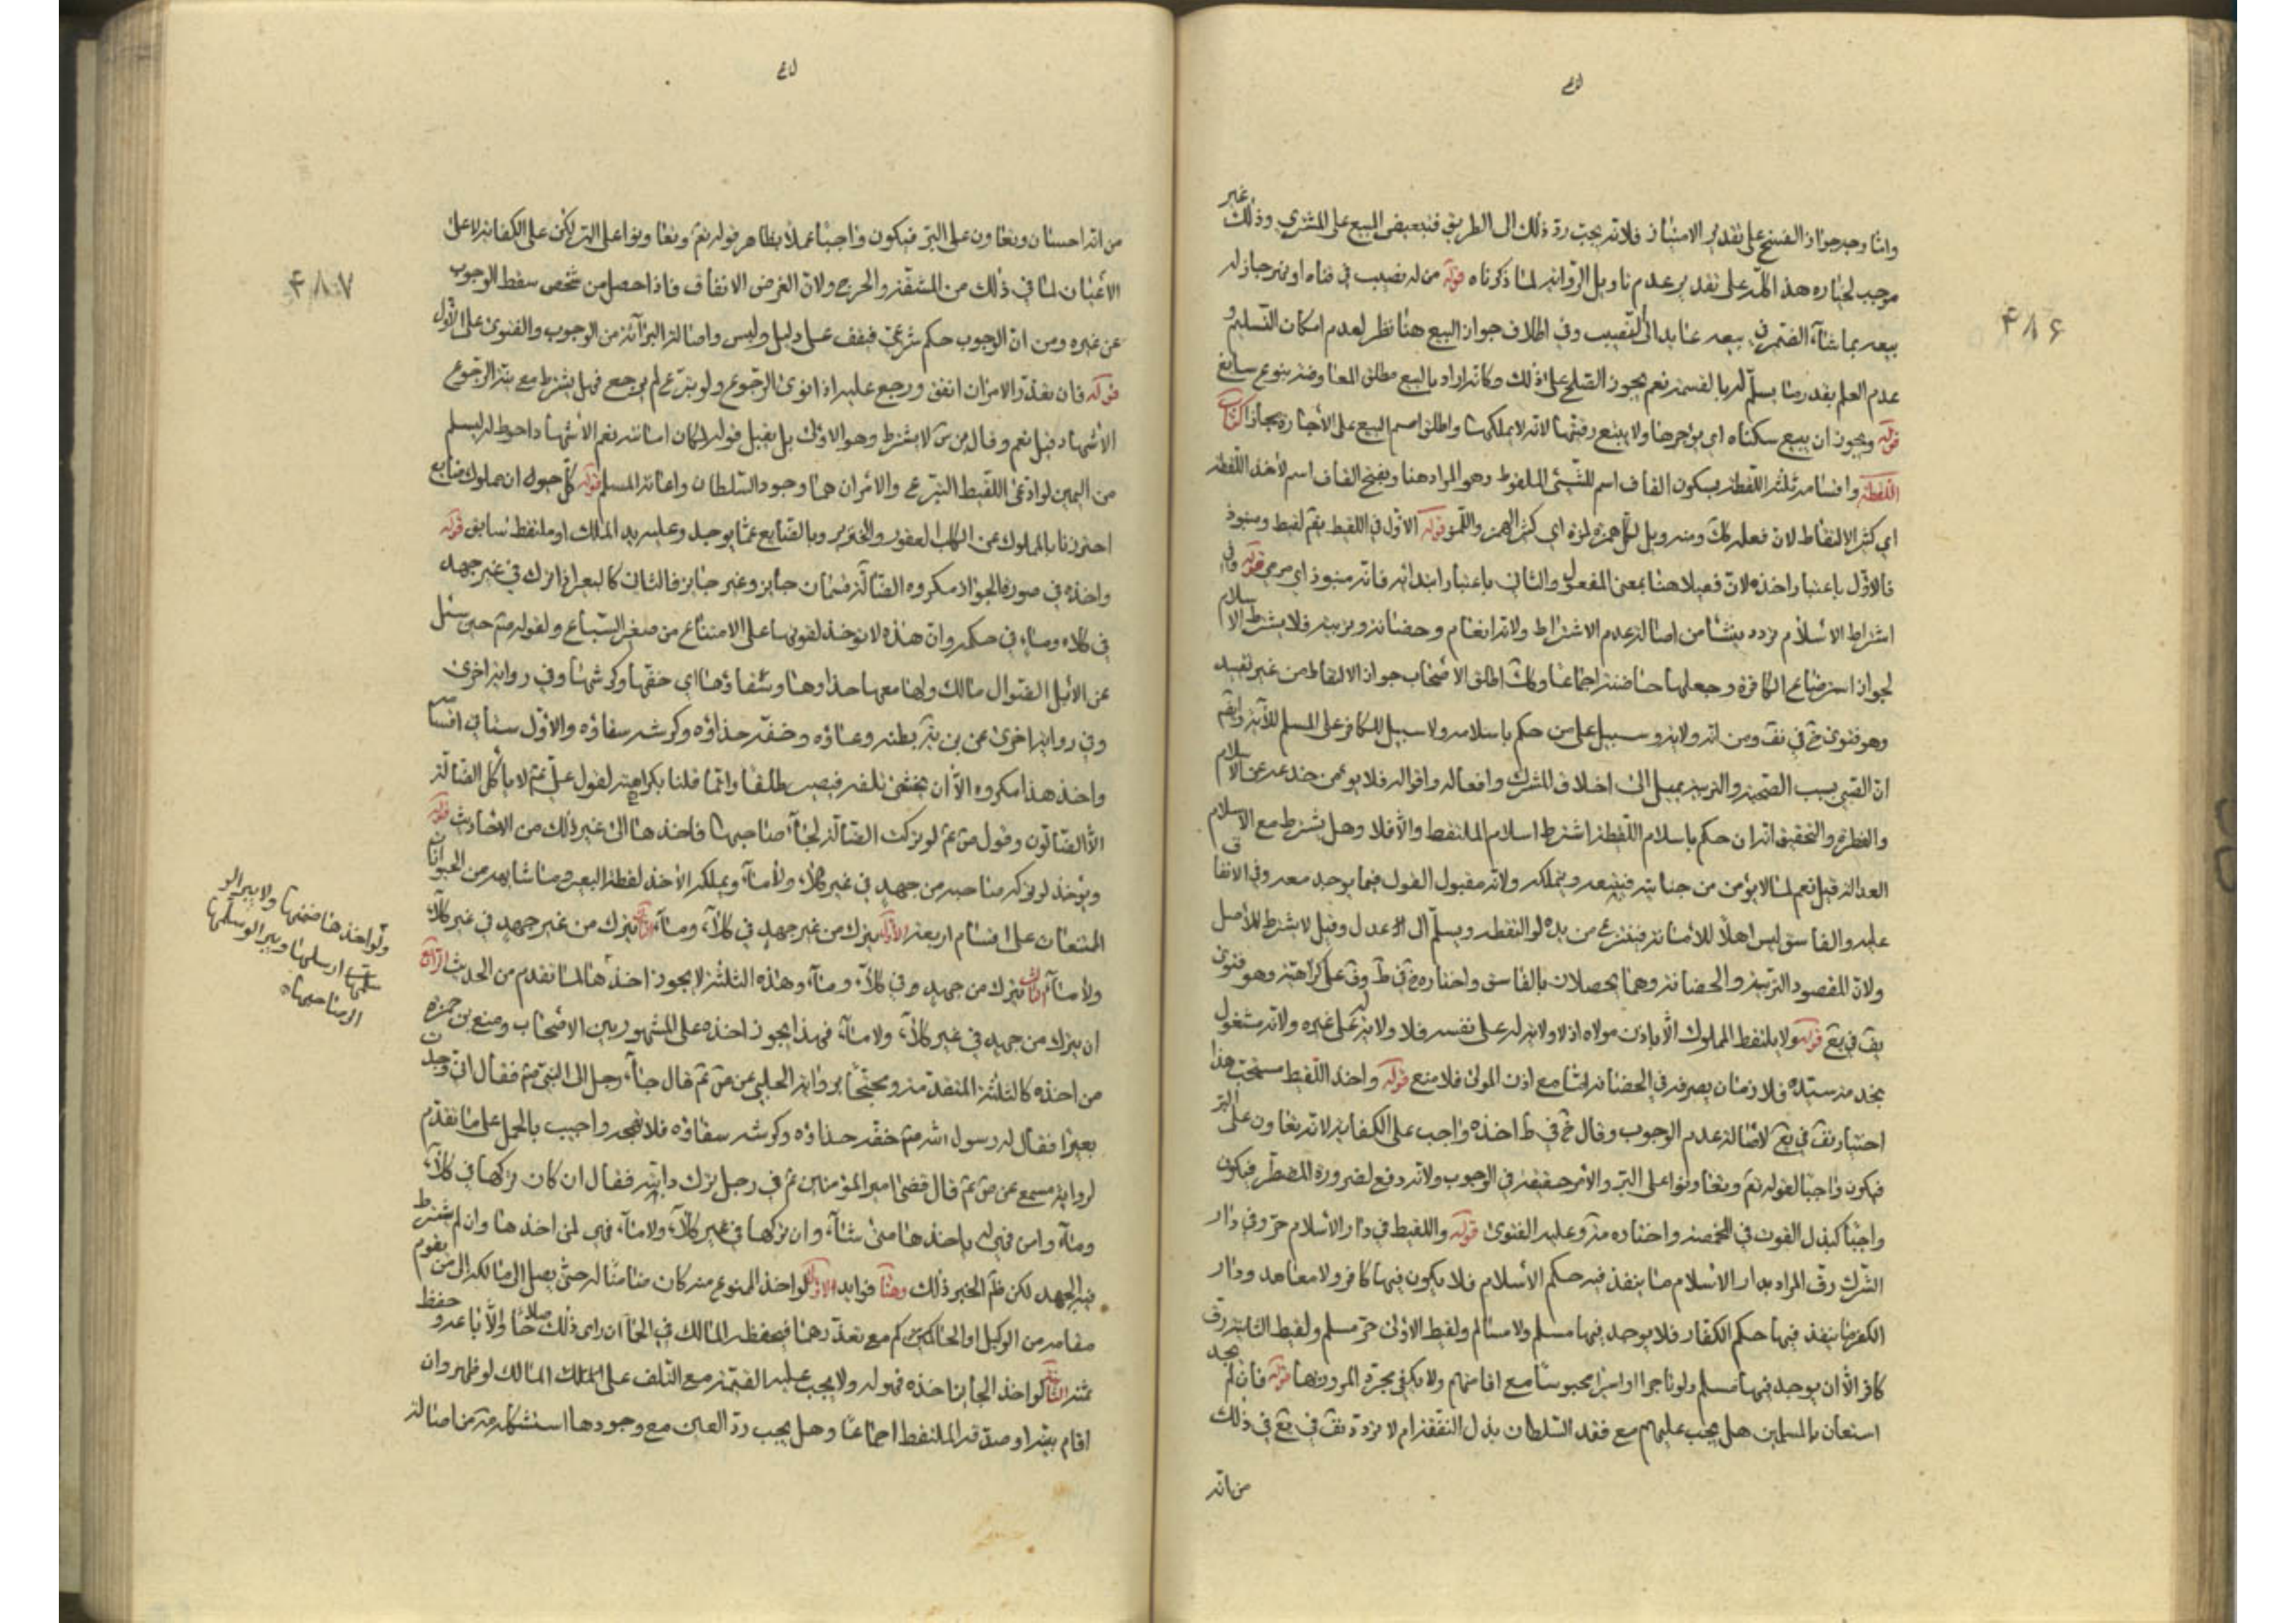 ۴۸۶
وامّا وجه جواز الفسخ على تقدير الامتياز فلانه يجب ردّ ذلك الى الطريق فيتبعض المبيع على المشتري وذلك غير
موجب لخياره هذا كله على تقدير عدم تاويل الرواية لما ذكرناه قوله من له نصيب في قناة او نهر جاز له
بيعه بما شاء الضمير في بيعه عايد الى النصيب وفي اطلاق جواز البيع هنا نظر لعدم امكان التسليم و
عدم العلم بقدر ما يسلّم له بالقسمة نعم يجوز الصلح على ذلك وكانه اراد بالبيع مطلق المعاوضة بنوع سايغ
قوله ويجوز ان يبيع سكناه اي يواجرها ولا يبيع رقبتها لانه لا يملكها واطلق اسم البيع على الاجارة مجازا كتاب
اللقطة واقسامه ثلثة اللقطة بسكون القاف اسم للشيئ الملقوط وهو المراد هنا وبفتح القاف اسم لاخذ اللقطة
اي كثير الالتقاط لان فعلة كك ومنه ويل لكل همزة لمزة اي كثير الهمز واللمز قوله الاوّل في اللقيط يقم لقيط ومنبوذ
فالاوّل باعتبار اخذه لان فعيلا هنا بمعنى المفعول والثاني باعتبار ابتدائه فانه منبوذ اي مرمي قوله وفي
اشتراط الاسلام تردد ينشا من اصالة عدم الاشتراط ولانه انعام وحضانة وتربية فلا يشترط الاسلام
لجواز استرضاع الكافرة وجعلها حاضنة اجماعا وكك اطلق الاصحاب جواز الالتقاط من غير تقييد
وهو فتوى خ في ف ومن انه ولاية وسبيل على من حكم باسلامه ولا سبيل للكافر على المسلم للآية وايضم
ان الصبي بسبب الصحبة والتربية يميل الى اخلاق المشرك وافعاله واقواله فلا يومن خدعه عن الاسلام
والفطرة والتحقيق انه ان حكم باسلام اللقطة اشترط اسلام الملتقط والاّ فلا وهل يشترط مع الاسلام
العدالة قيل نعم لما لا يؤمن من جنايته فيتبعه ويتملكه ولانه مقبول القول فيما يوجد معه وفي الانفاق
عليه والفاسق ليس اهلا للامانة فينتزع من يده لو التقطه ويسلّم الى عدل وقيل لا يشترط للاصل
ولان المقصود التربية والحضانة وهما يحصلان بالفاسق واختاره خ في ط وف على كراهية وهو فتوى
يف في يع قوله ولا يلتقط المملوك الاّ باذن مولاه اذ لا ولاية له على نفسه فلا ولاية له على غيره ولانه مشغول
بخدمة سيّده فلا زمان يصرفه في الحضانة امّا مع اذن المولى فلا منع قوله واخذ اللقيط مستحب هذا
اختيار يف في يع لاصالة عدم الوجوب وقال خ في ط اخذه واجب على الكفاية لانه تعاون على البرّ
فيكون واجبا لقوله تعم وتعاونوا على البرّ والامر حقيقة في الوجوب ولانه دفع لضرورة المضطر فيكون
واجبا كبذل القوت في المخمصة واختاره مة وعليه الفتوى قوله واللقيط في دار الاسلام حرّ وفي دار
الشرك رقّ المراد بدار الاسلام ما ينفذ فيه حكم الاسلام فلا يكون فيها كافر ولا معاهد ودار
الكفر ما ينفذ فيها حكم الكفّار فلا يوجد فيها مسلم ولا مسالم ولقيط الاولى حرّ مسلم ولقيط الثانية رقّ
كافر الاّ ان يوجد فيها مسلم ولو تاجرا او اسيرا محبوسا مع اقامتهم ولا يكفي مجرّد المرور بها قوله فان لم يجد
استعان بالمسلمين هل يجب عليهم مع فقد السلطان بذل النفقة ام لا تردّد يف في يع في ذلك
من انه
۴۸۷
من انه احسان وتعاون على البرّ فيكون واجبا عملا بظاهر قوله تعم وتعاونوا على البرّ لكن على الكفاية لا على
الاعيان لما في ذلك من المشقة والحرج ولان الغرض الانفاق فاذا حصل من شخص سقط الوجوب
عن غيره ومن ان الوجوب حكم شرعيّ فيقف على دليل وليس واصالة البرآئة من الوجوب والفتوى على الاوّل
قوله فان تعذّر الامران انفق ورجع عليه اذا نوى الرّجوع ولو تبرّع لم يرجع فهل يشترط مع نيّة الرّجوع
الاشهاد قيل نعم وقال ... لا يشترط وهو الاولى بل يقبل قوله لمكان امانته نعم الاشهاد احوط له ليسلم
من اليمين لو ادعى اللقيط التبرع والامران هنا وجود السلطان واعانة المسلم قوله كلّ حيوان مملوك ضايع
احترزنا بالمملوك عن الكلب العقور والخنزير وبالضايع عمّا يوجد وعليه يد المالك او ملتقط سابق قوله
واخذه في صورة الجواز مكروه الضالّة قسمان جايز وغير جايز فالثاني كالبعير اذا ترك في غير جهد
في كلاء وماء في حكمه وان هذه لا توخذ لقوتها على الامتناع من صغير السّباع ولقوله م حين سئل
عن الابل الضّوال مالك ولها معها حذاوها وسقاؤها اي خفّها وكرشها وفي رواية اخرى
وفي رواية اخرى عن ... بطنه وعاؤه وخفّه حذاؤه وكرشه سقاؤه والاوّل سيأتي اقسامه
واخذ هذا مكروه الاّ ان يخشى تلفه فيصير طلقا وانّما قلنا بكراهيته لقول عليّ عم لا ياكل الضالّة
الاّ الضالّون وقول ص عم لو تركت الضالّة لجآء صاحبها فاخذها الى غير ذلك من الاحاديث قوله
ويؤخذ لو تركه صاحبه من جهد في غير كلاء ولا مآء ويملكه الاخذ لقطة البعير وما شابهه من الحيوانات
الممتنعات على اقسام اربعة الاوّل يترك من غير جهد في كلآء ومآء الثاني يترك من غير جهد في غير كلآء
ولا مآء الثالث يترك من جهد وفي كلآء ومآء وهذه الثلثة لا يجوز اخذها لما تقدم من الحديث الرابع
ان يترك من جهد في غير كلاء ولا مآء فهذا يجوز اخذه على المشهور بين الاصحاب ومنع بن حمزة
من اخذه كالثلثة المتقدمة ومحتجّا برواية الحلبي عن ص عم قال جآء رجل الى النبي م فقال اني وجدت
بعيرا فقال له رسول اللّه م خفّه حذاؤه وكرشه سقاؤه فلا تهجه واجيب بالحمل على ما تقدّم
لرواية مسمع عن ص عم قال قضى امير المؤمنين عم في رجل ترك دابته فقال ان كان تركها في كلآء
ومآء وامن فهي له ياخذها متى شآء وان تركها في غير كلآء ولا مآء فهي لمن اخذها وان لم يشترط
فيه الجهد لكن ظم الخبر ذلك وهنا فوايد الاولى لو اخذ الممنوع منه كان ضامنا له حتى يصل الى مالكه او الى من يقوم
مقامه من الوكيل او الحاكم مع تعذّرهما فيحفظه المالك في الحمآ ان راى ذلك صلاحا والاّ باعه وحفظ
ثمنه الثانية لو اخذ الجايز اخذه فهو له ولا يجب عليه القيمة مع التلف على المالك لو ظهر وان
اقام بيّنة او صدّقه الملتقط اجماعا وهل يجب ردّ العين مع وجودها استشكله مة من اصالة
ولو اخذها ضمنها ولا يبرا لو
سيّبها او ارسلها ويبرا لو سلّمها
الى صاحبها